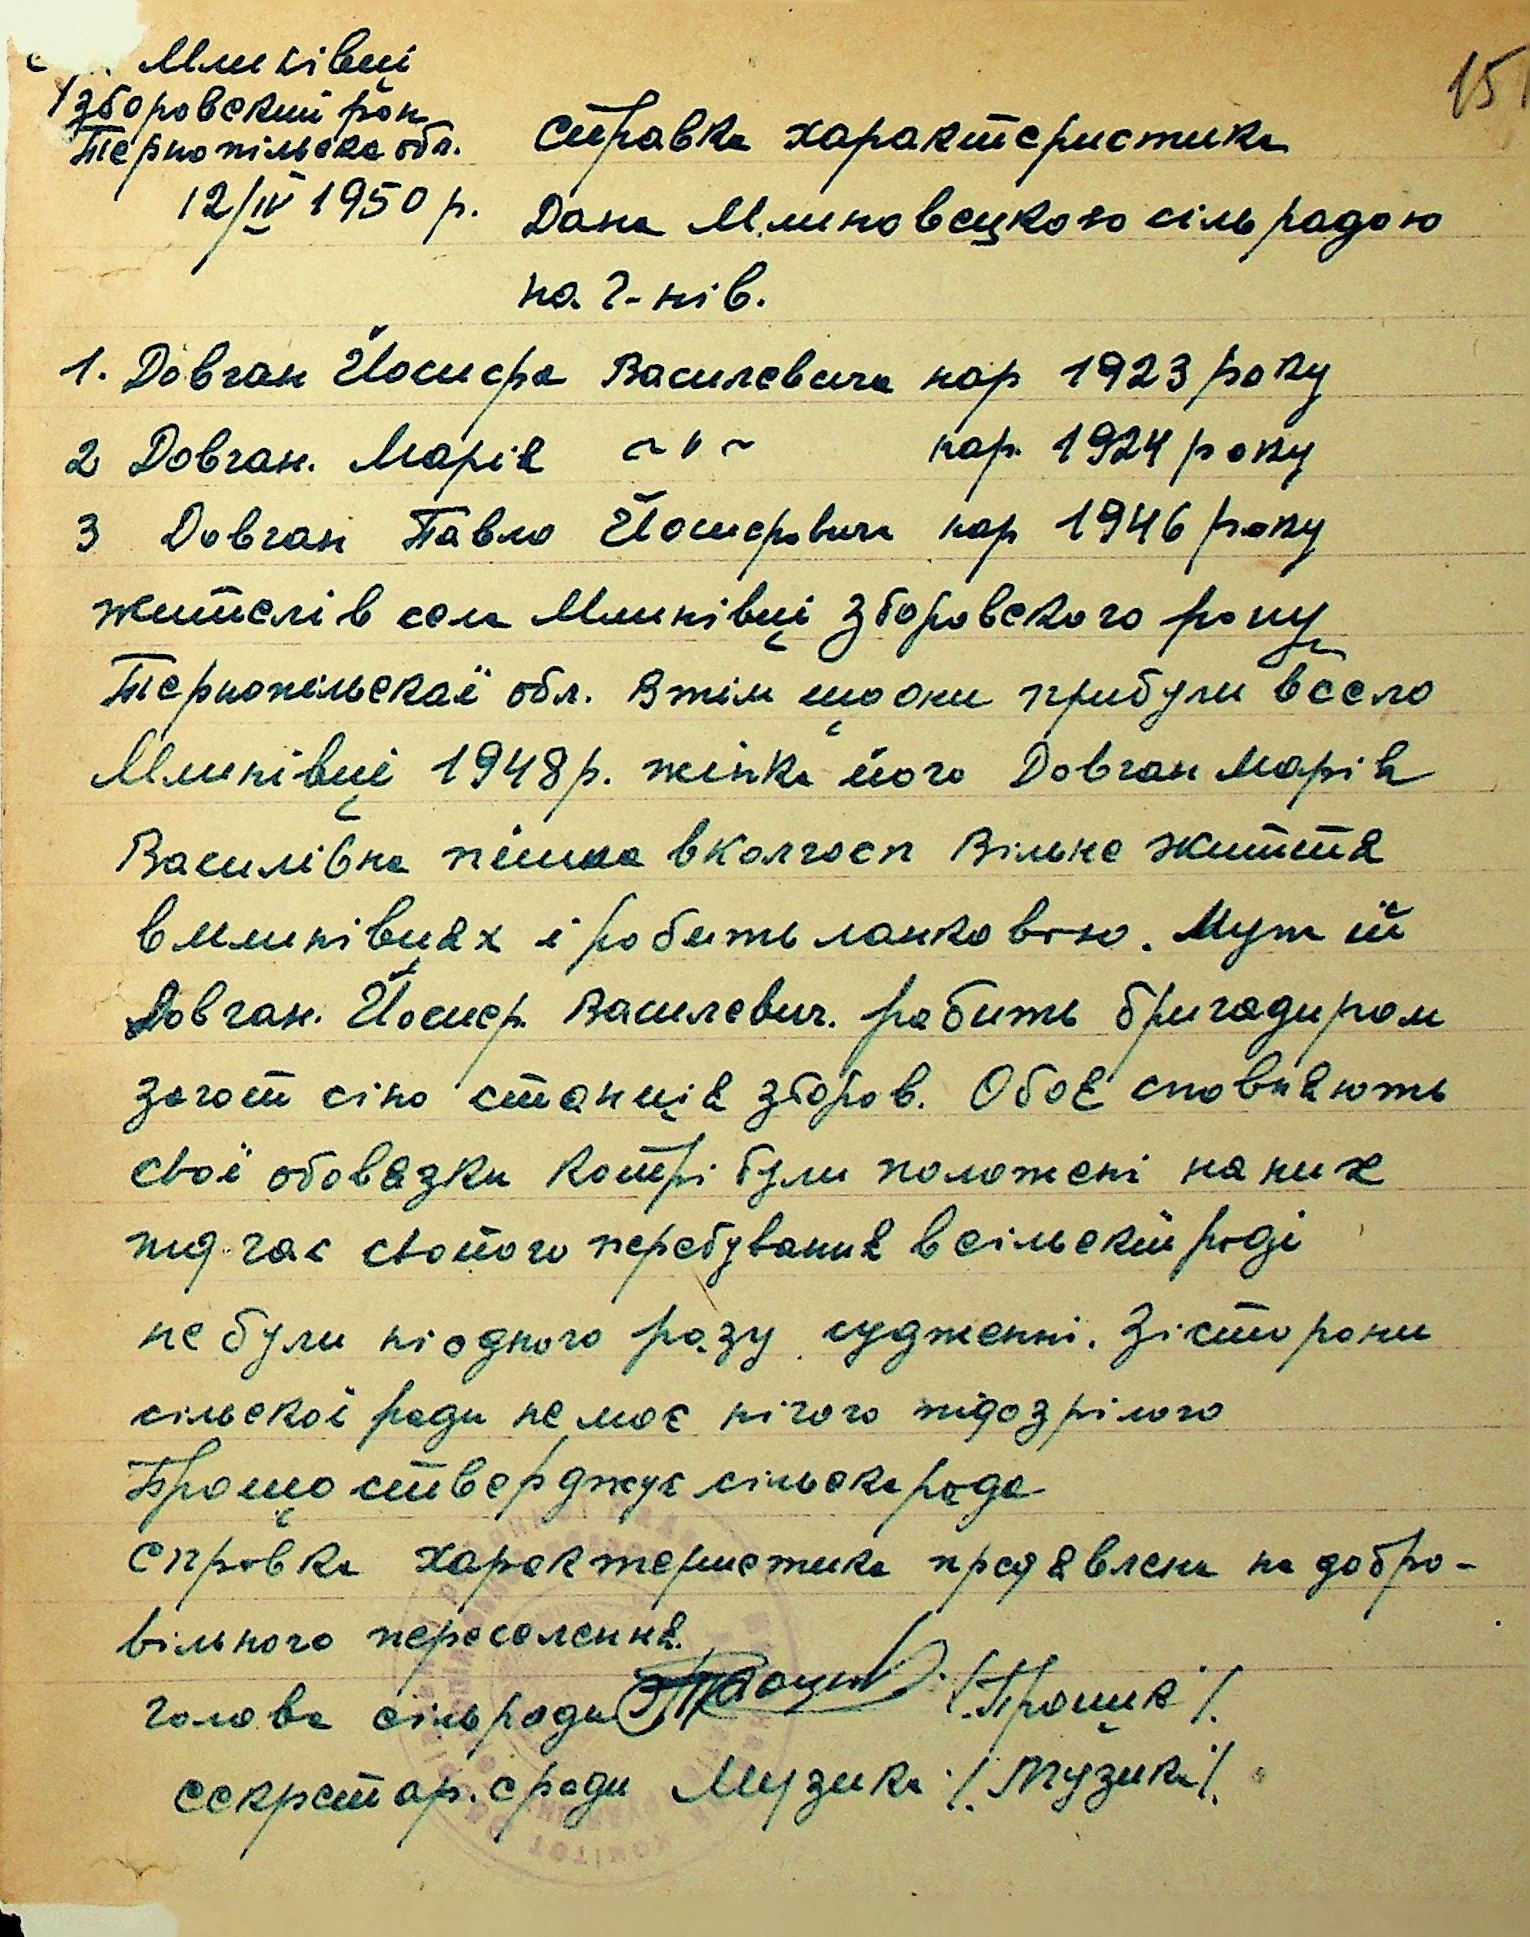 Млинівці
Зборовский рон
Тернопільска обл.
12/IV 1950 р.
15
справка характеристика
Дана Млиновецкою сільрадою
на г-нів.
1. Довган Йосифа Василевича нар 1923 року
2 Довган. Марія ~"~ нар. 1924 року
3 Довган Павло Йосифович нар 1946 року
жителів села Млинівці Зборовского рону
Тернопільскаї обл. В тім що они прибули в село
Млинівці 1948 р. жінка його Довган Марія
Василівна пішла в колгосп Вільне життя
в млинівцях і робить ланковою. Муж її
Довган. Йосиф. Василевич. робить бригадиром
загот сіно станція Зборов. Обоє сповняють
свої обовязки котрі були положені на них
під час свойого перебування в сільскій раді
не були ніодного разу судженні. Зі сторони
сільскої ради не має нічого підозрілого
Прощо стверджує сільска рада
справка характеристика предявлена на добро-
вільного переселення.
голова сільради /.Процик/.
секретар. с ради Музика /.Музика/.